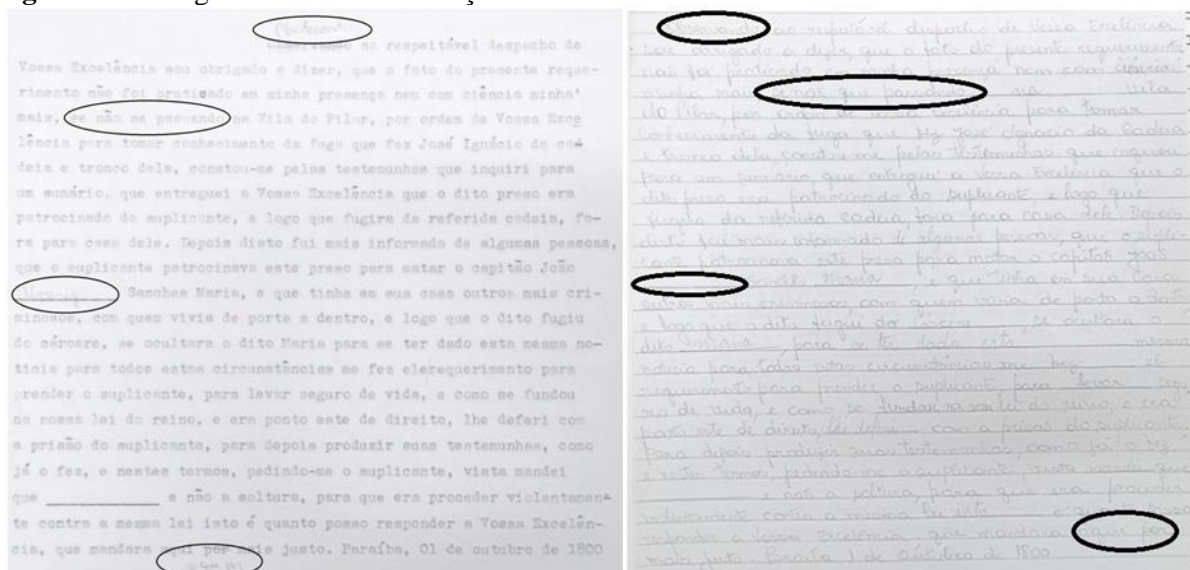 Obedecendo
Observando ao respeitável despacho de
Vossa Excelência sou obrigado a dizer, que o fato do presente reque-
rimento não foi praticado em minha presença nem com ciência minha'
mais, se não me passando na Vila do Pilar, por ordem de Vossa Exce
lência para tomar conhecimento da fuga que fez José Ignácio da ca-
deia e tronco dela, constou-me pelas testemunhas que inquiri para
um sumário. que entreguei a Vossa Excelência que o dito preso era
patrocinado do suplicante, e logo que fugira da referida cadeia, fo-
ra para casa dele. Depois disto fui mais informado de algumas pessoas,
que o suplicante patrocinava este preso para matar o capitão João
Sanches Maria, e que tinha em sua casa outros mais cri-
minosos, com quem vivia de porta a dentro, e logo que o dito fugiu
do cárcere, se ocultara o dito Maria para se ter dado esta mesma no-
tícia para todas estas circunstâncias me fez elerequerimento para
prender o suplicante, para levar seguro de vida, e como se fundou
na nossa lei do reino, e era ponto este de direito, lhe deferi com
a prisão do suplicante, para depois produzir suas testemunhas, como
já o fez, e nestes termos, pedindo-me o suplicante, vista mandei
que ________ e não a soltura, para que era proceder violentamen-
te contra a mesma lei isto é quanto posso responder a Vossa Excelên-
cia, que mandara aqui por mais justo. Paraíba, 01 de outubro de 1800
ao respeitável despacho de Vossa Excelência
sou obrigado a dizer, que o fato do presente requerimento
não foi praticado em minha presença nem com ciência
minha mais, se não que passando na vila
do Pilar, por ordem de Vossa Excelência para tomar
conhecimento da fuga que fez José Ignácio da Cadeia
e tronco dela, constou me pelas testemunhas que inqueri
para um sumário, que entreguei a Vossa Excelência que o
dito preso era patrocinado do suplicante e logo que
fugira da referida cadeia fora para casa dele. Depois
disto fui mais informado de algumas pessoas, que o supli-
cante patrocinava este preso para matar o capitão João
Maria e que tinha em sua casa
outros mais criminosos, com quem vivia de porta a dentro
e logo que o dito fugiu do cárcere, se ocultara o
dito para se ter dado esta mesma
notícia para todas estas circunstâncias me fez el
requerimento para prender o suplicante, para levar segu
ro de vida, e como se lei do reino, e era
ponto este de direito, lhe deferi com a prisão do suplicante
para depois produzir suas testemunhas, como já o fez
e nestes termos, pedindo-me o suplicante, vista mandei que
e não a soltura, para que era proceder
violentamente contra a mesma lei isto é quanto posso
responder a Vossa Excelência, que mandara por
mais justo. 1 de outubro de 1800